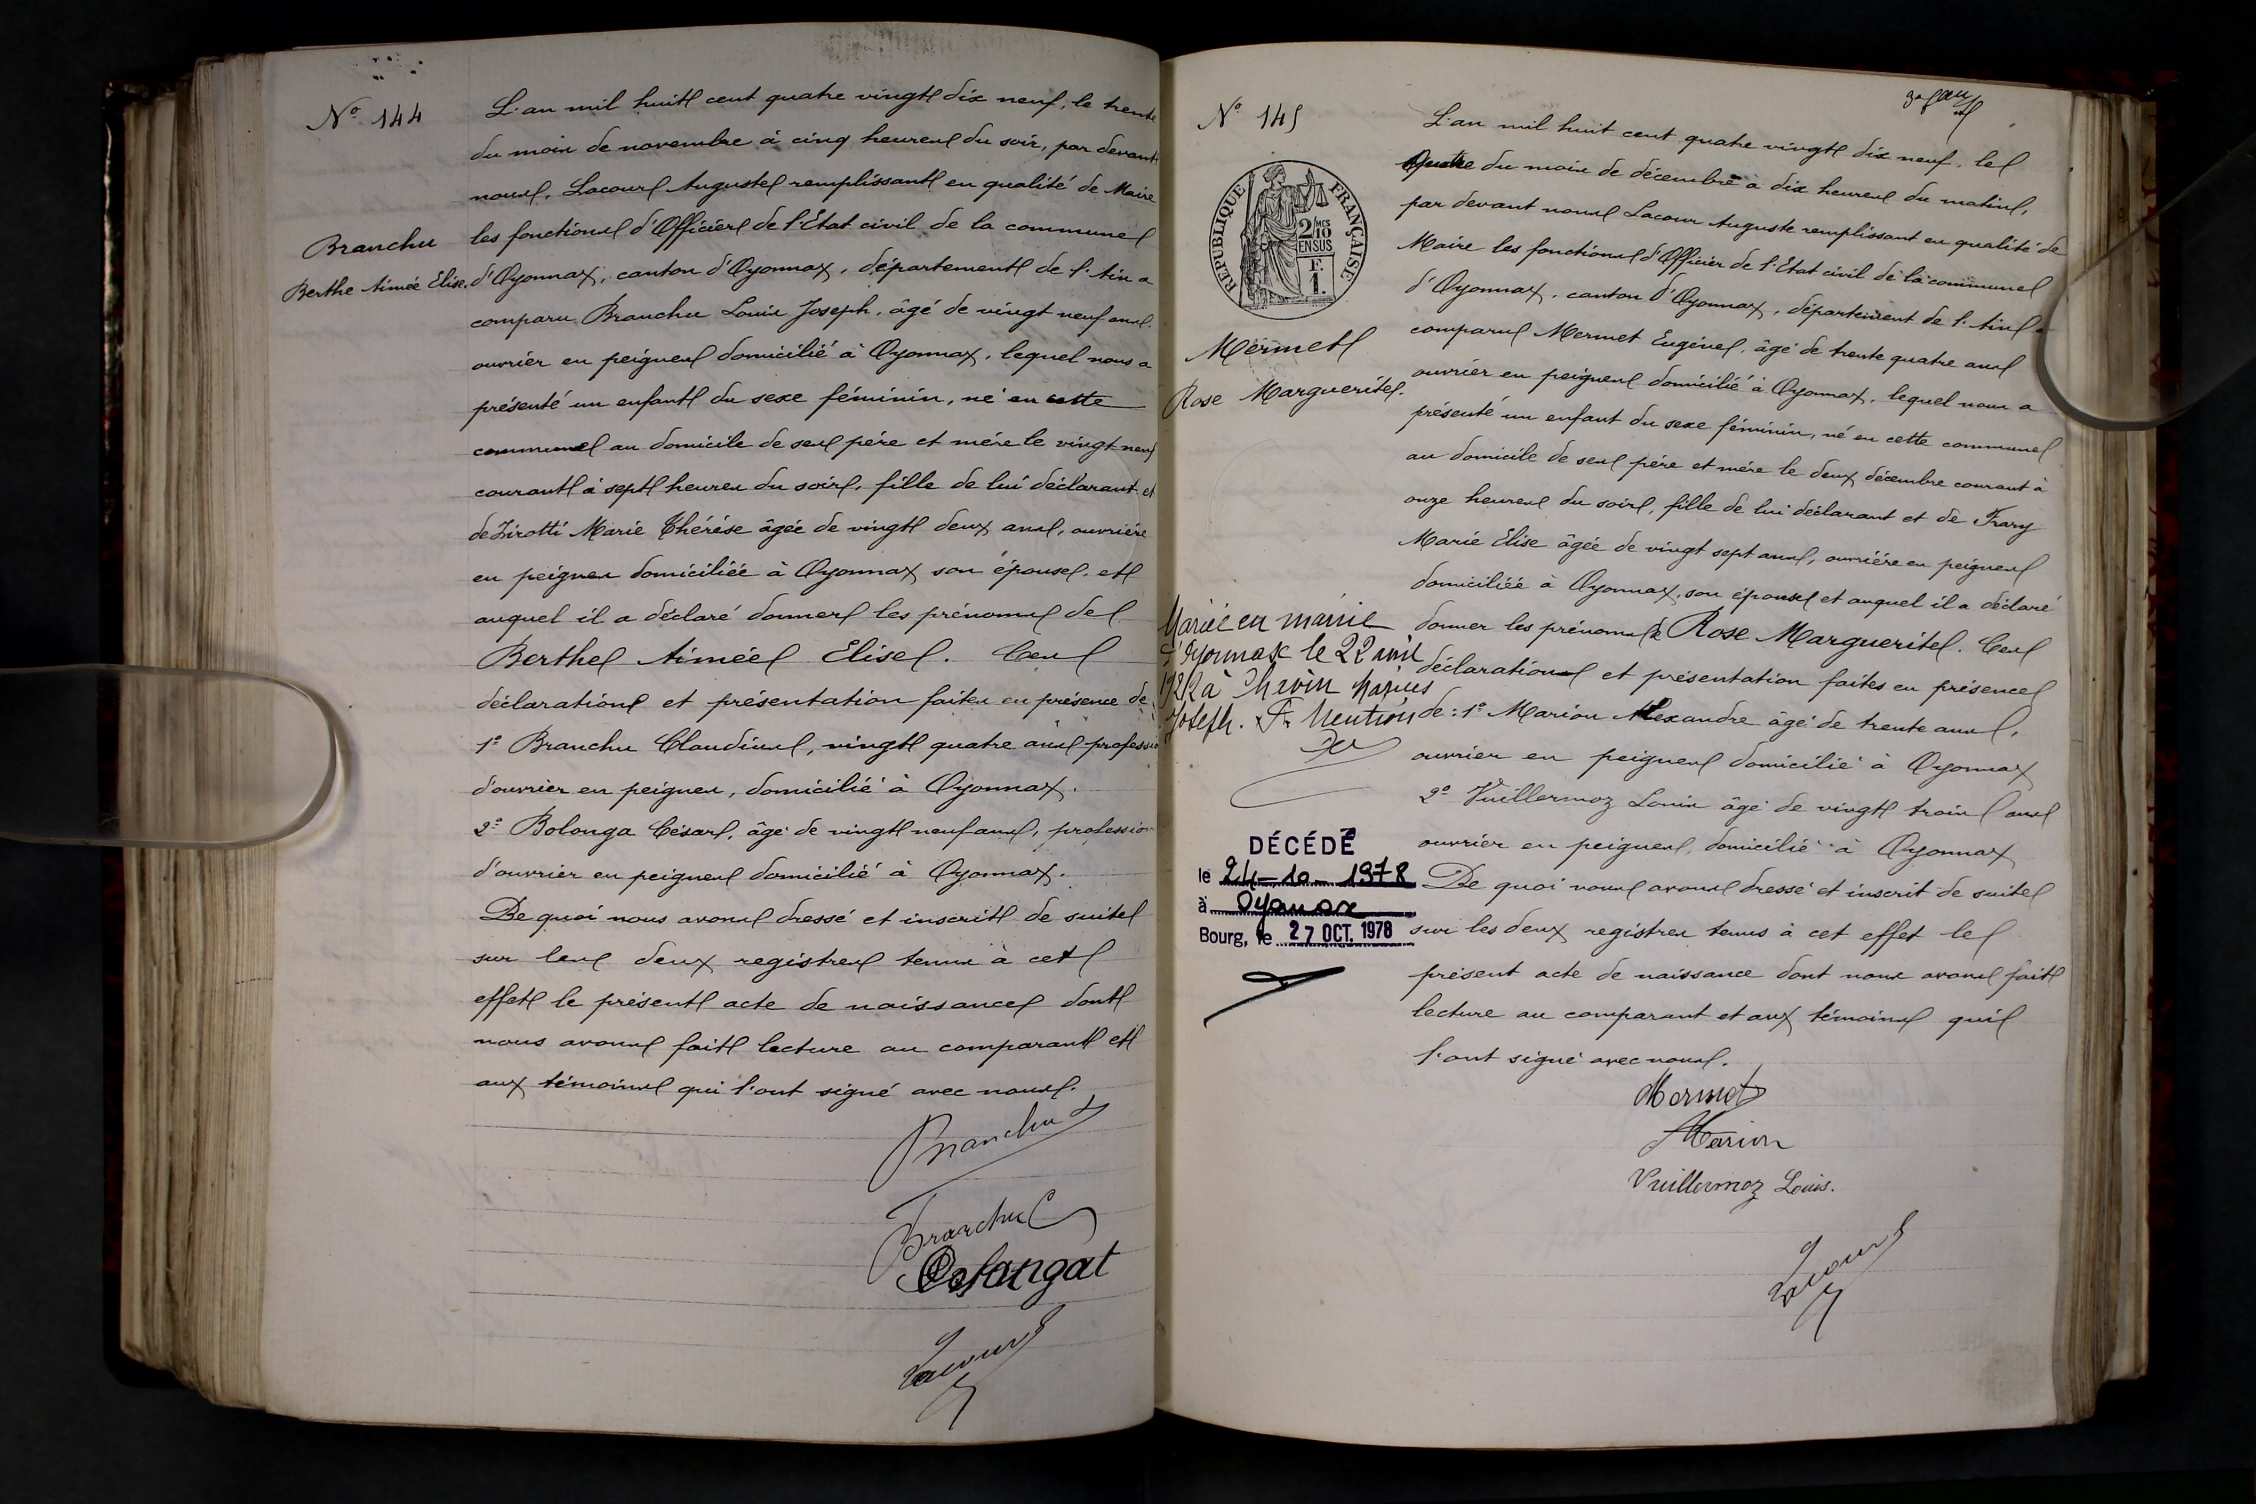 N° 144
Branchu
Berthe Aimée Elise.
L'an mil huit cent quatre vingt dix neuf, le trente
du mois de novembre à cinq heures du soir, par devant
nous, Lacour Auguste remplissant en qualité de Maire
les fonctions d'Officier de l'Etat civil de la commune
d'Oyonnax, canton d'Oyonnax, département de l'Ain a
comparu Branchu Louis Joseph, âgé de vingt neuf ans,
ouvrier en peignes domicilié à Oyonnax, lequel nous a
présenté un enfant du sexe féminin, né en cette
commune au domicile de ses père et mère le vingt neuf
courant à sept heures du soir, fille de lui déclarant et
de Zirotti Marie Thérèse âgée de vingt deux ans, ouvrière
en peignes domiciliée à Oyonnax son épouse, et
auquel il a déclaré donner les prénoms de
Berthe Aimée Elise. Ces
déclarations et présentation faites en présence de
1° Branchu Claudius, vingt quatre ans profession
d'ouvrier en peignes, domicilié à Oyonnax.
2° Bolonga César, âgé de vingt neuf ans, profession
d'ouvrier en peignes domicilié à Oyonnax.
De quoi nous avons dressé et inscrit de suite
sur les deux registres tenus à cet
effet le présent acte de naissance dont
nous avons fait lecture au comparant et
aux témoins qui l'ont signé avec nous.
Branchu
Branchu C
Lacour
N° 145
REPUBLIQUE FRANÇAISE
2/10 MES
EN SUS
F.
1.
Mermet
Rose Marguerite.
Mariée en mairie
d'Oyonnax le 22 avril
à Chevin Marius
Joseph. Pr Mention
DÉCÉDÉ
le 24-10-1978
à Oyonnax
Bourg, le 27 OCT. 1978
L'an mil huit cent quatre vingt dix neuf, le
quatre du mois de décembre à dix heures du matin,
par devant nous Lacour Auguste remplissant en qualité de
Maire les fonctions d'Officier de l'Etat civil de la commune
d'Oyonnax, canton d'Oyonnax, département de l'Ain a
comparu Mermet Eugène, âgé de trente quatre ans
ouvrier en peignes domicilié à Oyonnax, lequel nous a
présenté un enfant du sexe féminin, né en cette commune
au domicile de ses père et mère le deux décembre courant à
onze heures du soir, fille de lui déclarant et de Frary
Marie Elise âgée de vingt sept ans, ouvrière en peignes
domiciliée à Oyonnax, son épouse et auquel il a déclaré
donner les prénoms de Rose Marguerite. Ces
déclarations et présentation faites en présence
de : 1° Marion Alexandre âgé de trente ans,
ouvrier en peignes domicilié à Oyonnax
2° Vuillermoz Louis âgé de vingt trois ans
ouvrier en peignes, domicilié à Oyonnax
De quoi nous avons dressé et inscrit de suite
sur les deux registres tenus à cet effet le
présent acte de naissance dont nous avons fait
lecture au comparant et aux témoins qui
l'ont signé avec nous.
Mermet
Marion
Vuillermoz Louis.
Lacour